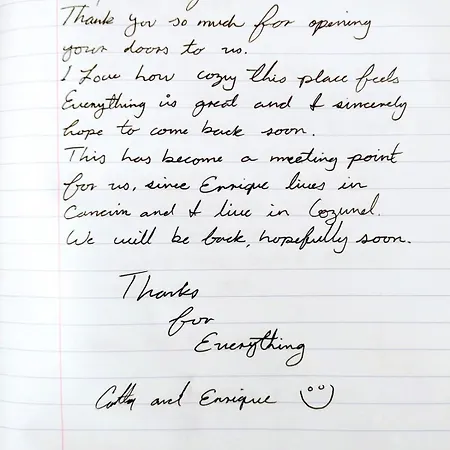 Thank you so much for opening
your doors to us.
I Love how cozy this place feels
Everything is great and I sincerely
hope to come back soon.
This has become a meeting point
for us, since Enrique lives in
Cancun and I live in Cozumel.
We will be back, hopefully soon.
Thanks
for
Everything
and Enrique